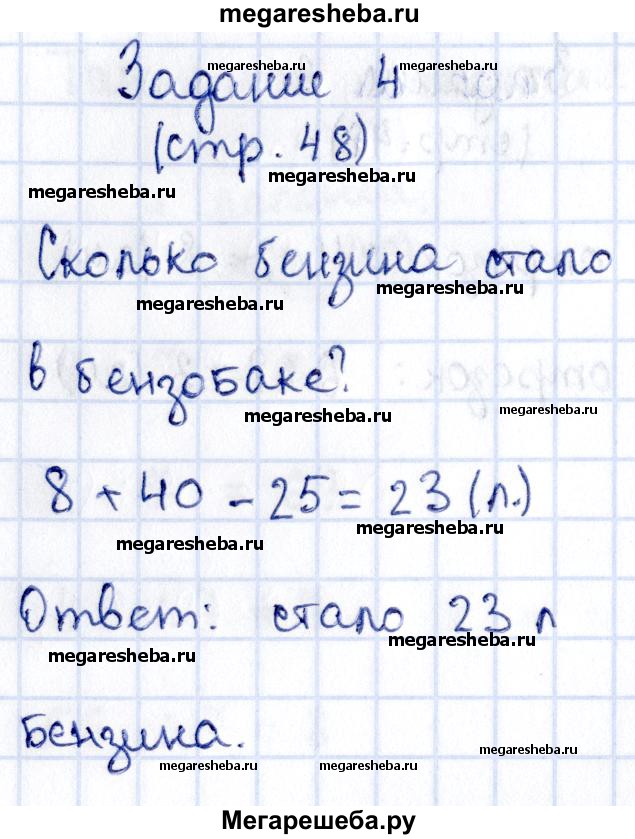 megaresheba.ru
Задание 4
megaresheba.ru megaresheba.ru
(стр. 48)
megaresheba.ru megaresheba.ru
Сколько бензина стало
megaresheba.ru megaresheba.ru
в бензобаке?
megaresheba.ru megaresheba.ru
8 + 40 - 25 = 23 (л.)
megaresheba.ru megaresheba.ru
Ответ: стало 23 л
megaresheba.ru megaresheba.ru
бензина.
megaresheba.ru megaresheba.ru megaresheba.ru
Мегарешеба.ру